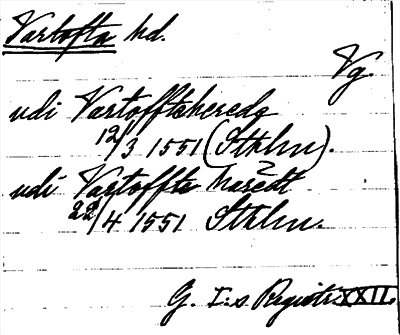 Vartofta hd.
Vg.
udi Vartofftaheredz
12/3 1551 (Sthlm).
udi Vartoffta haredt
22/4 1551 Sthlm.
G. I:s Registr. XXII.